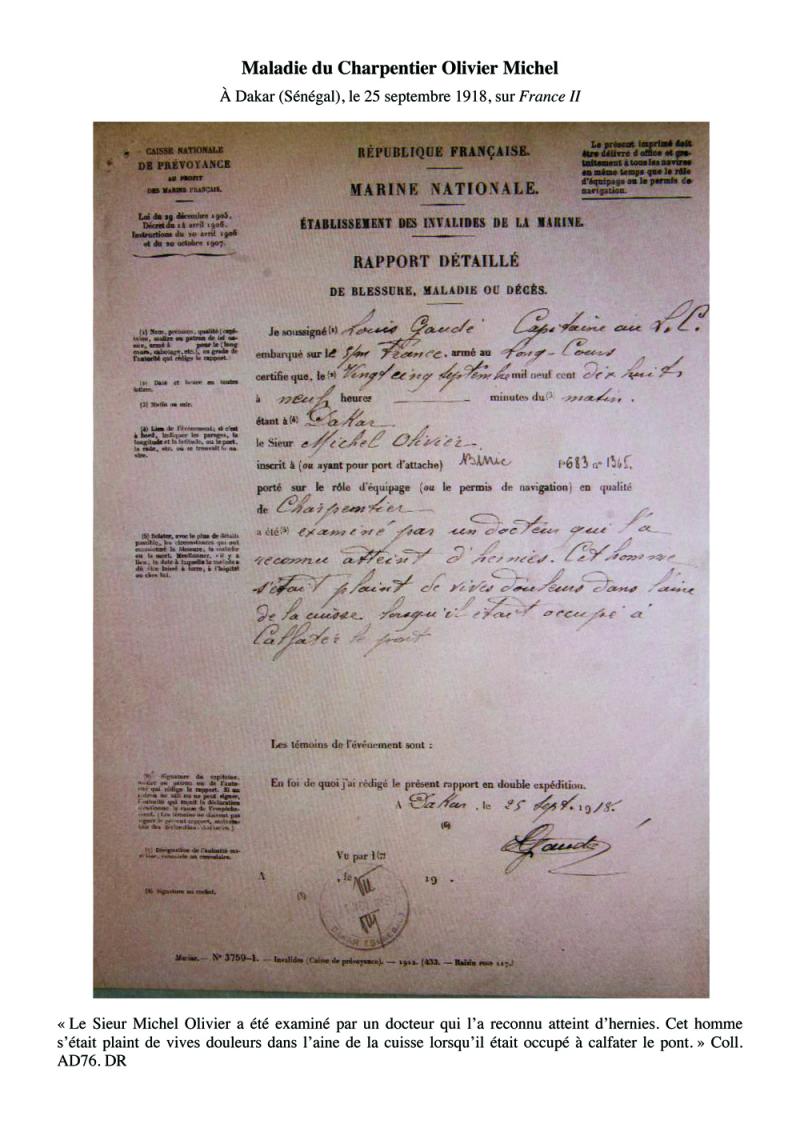 Maladie du Charpentier Olivier Michel
À Dakar (Sénégal), le 25 septembre 1918, sur France II
CAISSE NATIONALE
DE PRÉVOYANCE
AU PROFIT
DES MARINS FRANÇAIS.
Loi du 29 décembre 1905.
Décret du 14 avril 1906.
Instructions du 20 avril 1906
et du 20 octobre 1907.
RÉPUBLIQUE FRANÇAISE.
MARINE NATIONALE.
ÉTABLISSEMENT DES INVALIDES DE LA MARINE.
RAPPORT DÉTAILLÉ
DE BLESSURE, MALADIE OU DÉCÈS.
Le présent imprimé doit
être délivré d'office et gra-
tuitement à tous les navires
en même temps que le rôle
d'équipage ou le permis de
navigation.
(1) Nom, prénoms, qualité (capi-
taine, maître ou patron de tel na-
vire, armé à pour le (long
cours, cabotage, etc.), ou grade de
l'autorité qui rédige le rapport.
(2) Date et heure en toutes
lettres.
(3) Matin ou soir.
(4) Lieu de l'événement; si c'est
à bord, indiquer les parages, la
longitude et la latitude, ou le port,
la rade, etc. où se trouvait le na-
vire.
(5) Relater, avec le plus de détails
possible, les circonstances qui ont
occasionné la blessure, la maladie
ou la mort. Mentionner, s'il y a
lieu, la date à laquelle le malade a
dû être laissé à terre, à l'hôpital
ou chez lui.
Je soussigné (1) Louis Gaudé Capitaine au L.C.
embarqué sur le France. armé au Long-Cours
certifie que, le (2) Vingt cinq septembre mil neuf cent dix huit
à neuf heures minutes du (3) matin.
étant à (4) Dakar
le Sieur Michel Olivier
inscrit à (ou ayant pour port d'attache) Binic f° 683 n° 1365.
porté sur le rôle d'équipage (ou le permis de navigation) en qualité
de Charpentier
a été (5) examiné par un docteur qui l'a
reconnu atteint d'hernies. Cet homme
s'était plaint de vives douleurs dans l'aine
de la cuisse lorsqu'il était occupé à
Calfater le pont
Les témoins de l'événement sont :
En foi de quoi j'ai rédigé le présent rapport en double expédition.
A Dakar, le 25 Sept. 1918.
(6)
Gaudé
(6) Signature du capitaine,
Vu par (7)
A , le 19 .
(8)
(7) Désignation de l'autorité
(8) Signature et cachet.
DAKAR (SÉNÉGAL)
Marine. — N° 3759-1. — Invalides (Caisse de prévoyance). — 1912. (433. — Raisin
« Le Sieur Michel Olivier a été examiné par un docteur qui l'a reconnu atteint d'hernies. Cet homme
s'était plaint de vives douleurs dans l'aine de la cuisse lorsqu'il était occupé à calfater le pont. » Coll.
AD76. DR